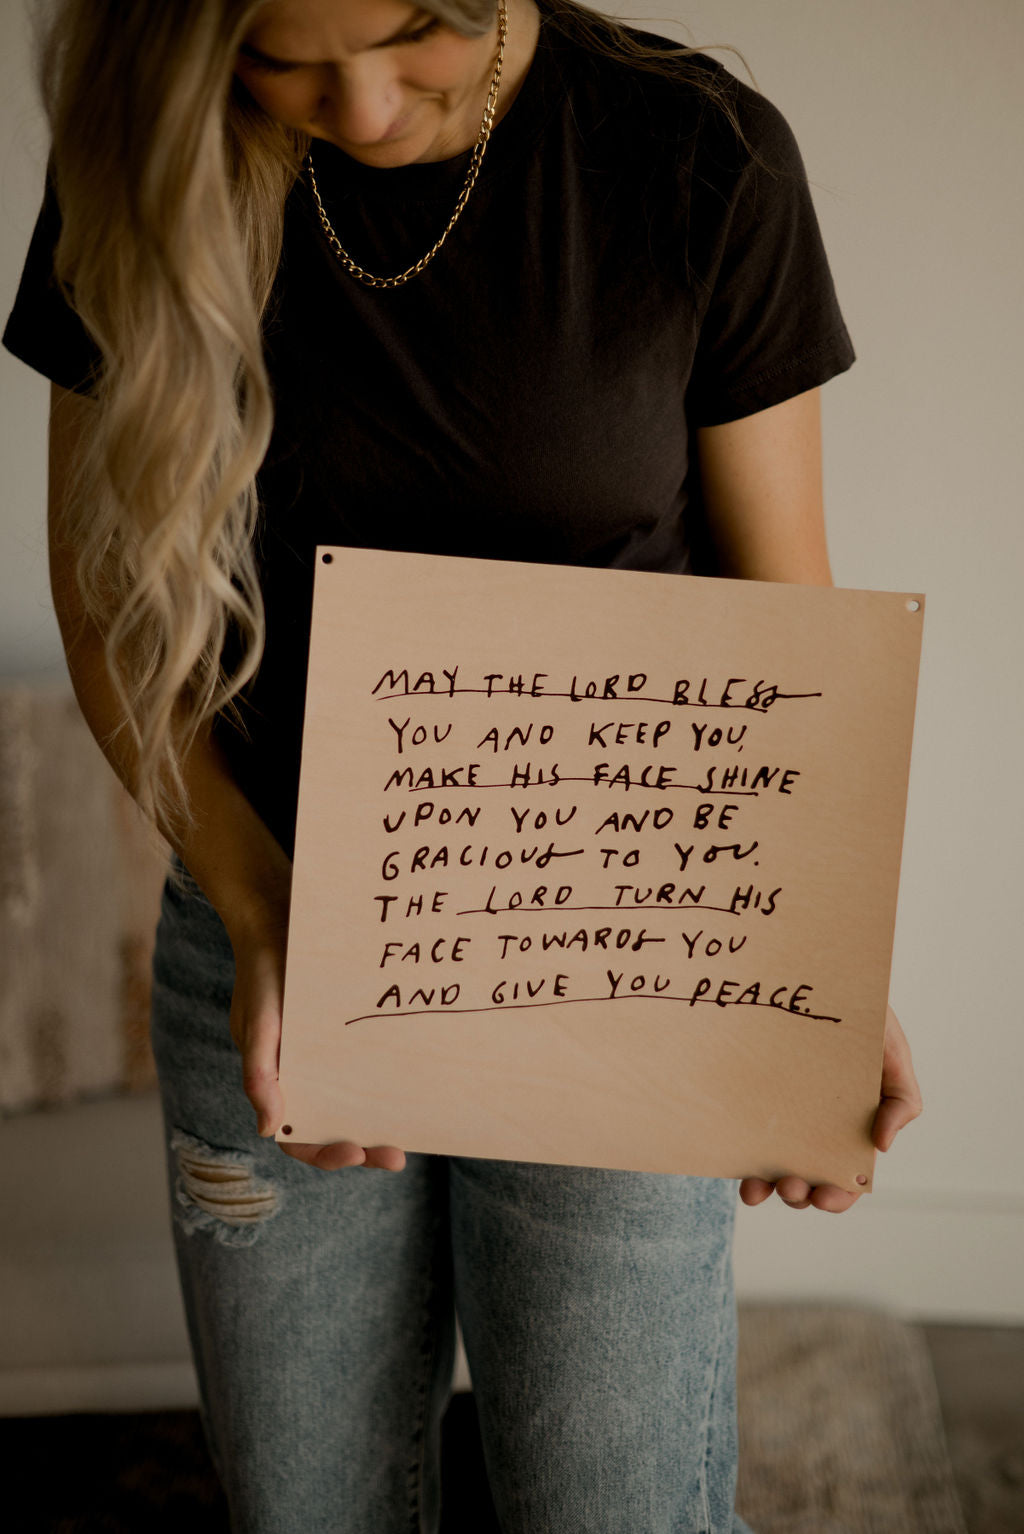 MAY THE LORD BLESS
YOU AND KEEP YOU,
MAKE HIS FACE SHINE
UPON YOU AND BE
GRACIOUS TO YOU.
THE LORD TURN HIS
FACE TOWARDS YOU
AND GIVE YOU PEACE.